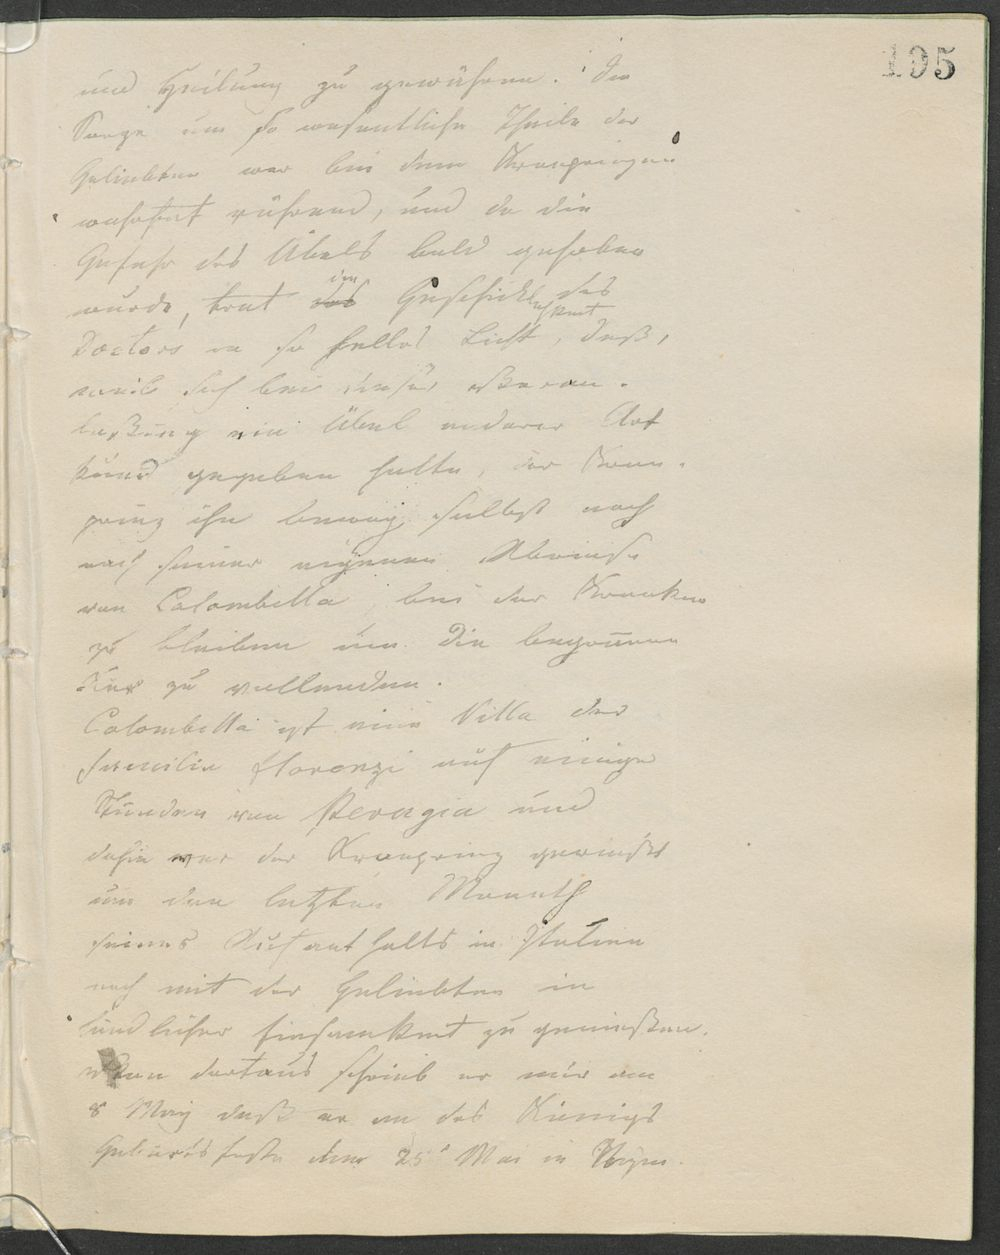 195
und Heilung zu gewähren. Die
Sorge um so wesentliche Theile der
Geliebten war bei dem Kronprinzen
wahrhaft rührend, und da die
Gefahr des Übels bald gehoben
wurde, trat die Geschicklichkeit des
Doctors in so helles Licht, daß,
weil sich bei dieser
ein Übel anderer Art
kund gegeben hatte, der Kron-
prinz ihn bewog, selbst noch
nach seiner eigenen Abreise
von Colombella, bei der Kranken
zu bleiben um die begonnene
Kur zu vollenden.
Colombella ist eine Villa der
Familie Florenzi auf einige
Stunden von Perugia und
dahin war der Kronprinz gereist
um den letzten Monath
seines Aufenthalts in Italien
noch mit der Geliebten in
ländlicher Einsamkeit zu genießen.
Von dortaus schrieb er mir am
8 May daß er an des Königs
Geburtsfeste dem 25' Mai in